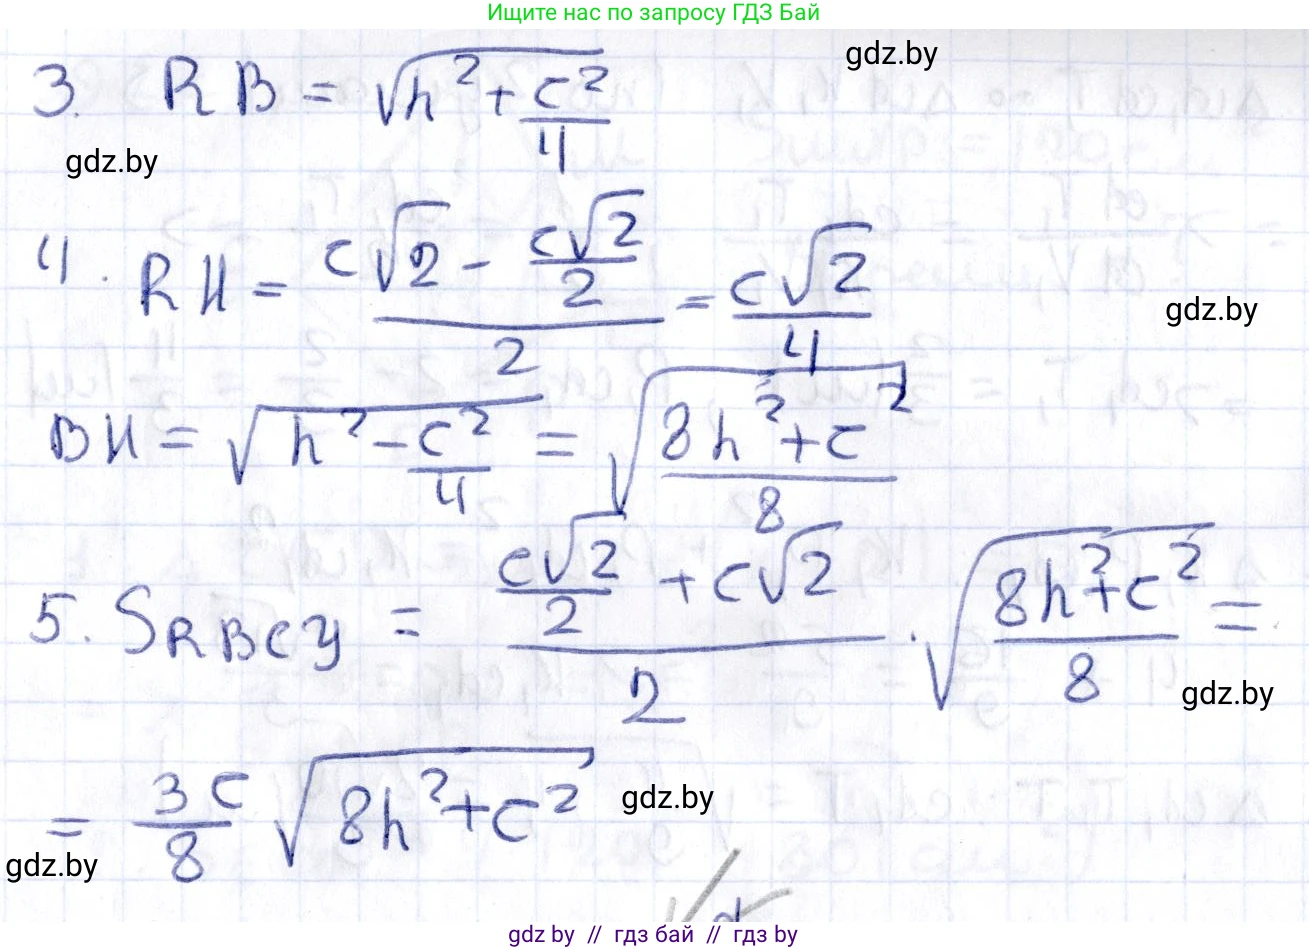 Ищите нас по запросу ГДЗ Бай
3. RB = √(h² + c²/4)
gdz.by
gdz.by
4. RH = (c√2 - c√2/2)/2 = c√2/4
gdz.by
BH = √(h² - c²/4) = √((8h² + c²)/8)
5. S RBCY = (c√2/2 + c√2)/2 · √((8h² + c²)/8) =
gdz.by
= 3c/8 √(8h² + c²)
gdz.by
gdz.by
gdz.by // гдз бай // gdz.by